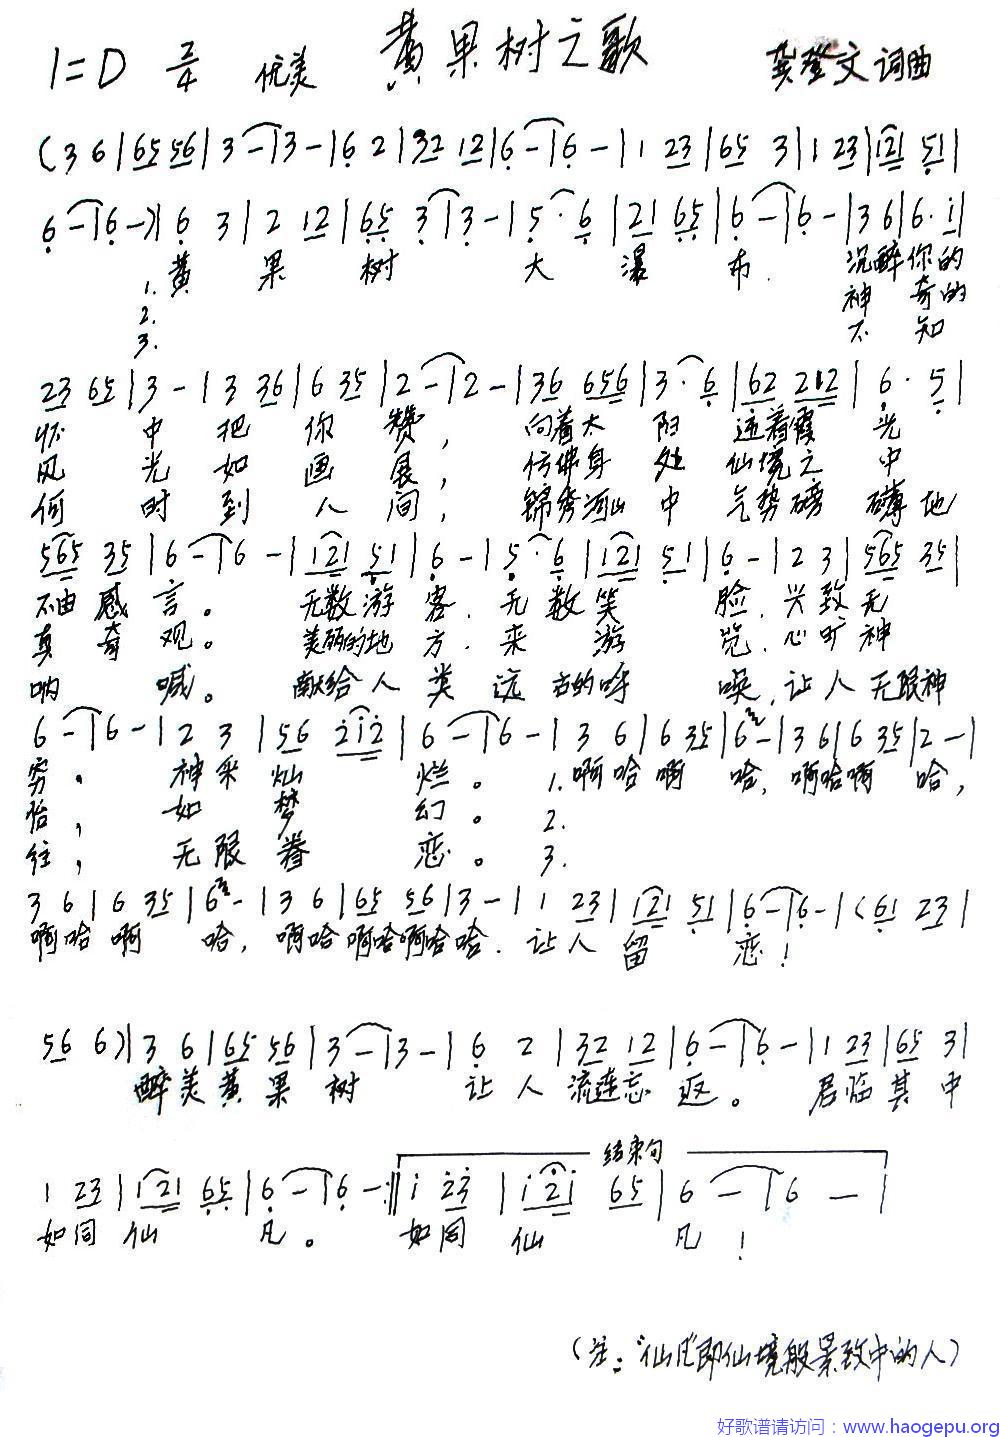 1=D 2/4 优美 黄果树之歌 龚登文词曲
(3 6|65 56|3 -|3 -|6 2|32 12|6 -|6 -|1 23|65 3|1 23|121 51|
6 -|6 -)|6 3|2 12|65 3|3 -|5· 6|21 65|6 -|6 -|3 6|6· i|
1. 黄 果 树 大 瀑 布. 沉醉你的
2. 神 奇的
3. 不 知
23 65|3 -|3 36|6 35|2 -|2 -|36 656|3· 6|62 212|6· 5|
怀 中 把 你 赞, 向着太 阳 迎着霞 光
风 光 如 画 展, 仿佛身 处 仙境之 中
何 时 到 人 间, 锦秀河山 中 气势磅 礴地
565 35|6 -|6 -|121 51|6 -|5· 6|121 51|6 -|2 3|565 35|
不由 感 言。 无数游 客. 无 数 笑 脸. 兴致 无
真 奇 观。 美丽的地 方. 来 游 览. 心旷 神
呐 喊。 献给人 类 远 古的呼 唤. 让人 无限神
6 -|6 -|2 3|56 212|6 -|6 -|3 6|6 35|6 -|3 6|6 35|2 -|
穷, 神采 灿 烂。 1. 啊哈啊 哈, 啊哈啊 哈,
怡, 如 梦 幻。 2.
往, 无限 眷 恋。 3.
3 6|6 35|6 -|3 6|65 56|3 -|1 23|121 51|6 -|6 -|(61 23|
啊哈 啊 哈, 啊哈啊哈啊哈哈. 让人 留 恋!
56 6)|3 6|65 56|3 -|3 -|6 2|32 12|6 -|6 -|1 23|65 3|
醉美黄 果 树 让 人 流连忘 返。 君临其 中
结束句
1 23|121 65|6 -|6 -:||i 23|i2i 65|6 -|6 -|
如同 仙 凡。 如同 仙 凡!
(注:“仙凡”即仙境般景致中的人)
好歌谱请访问：www.haogepu.org